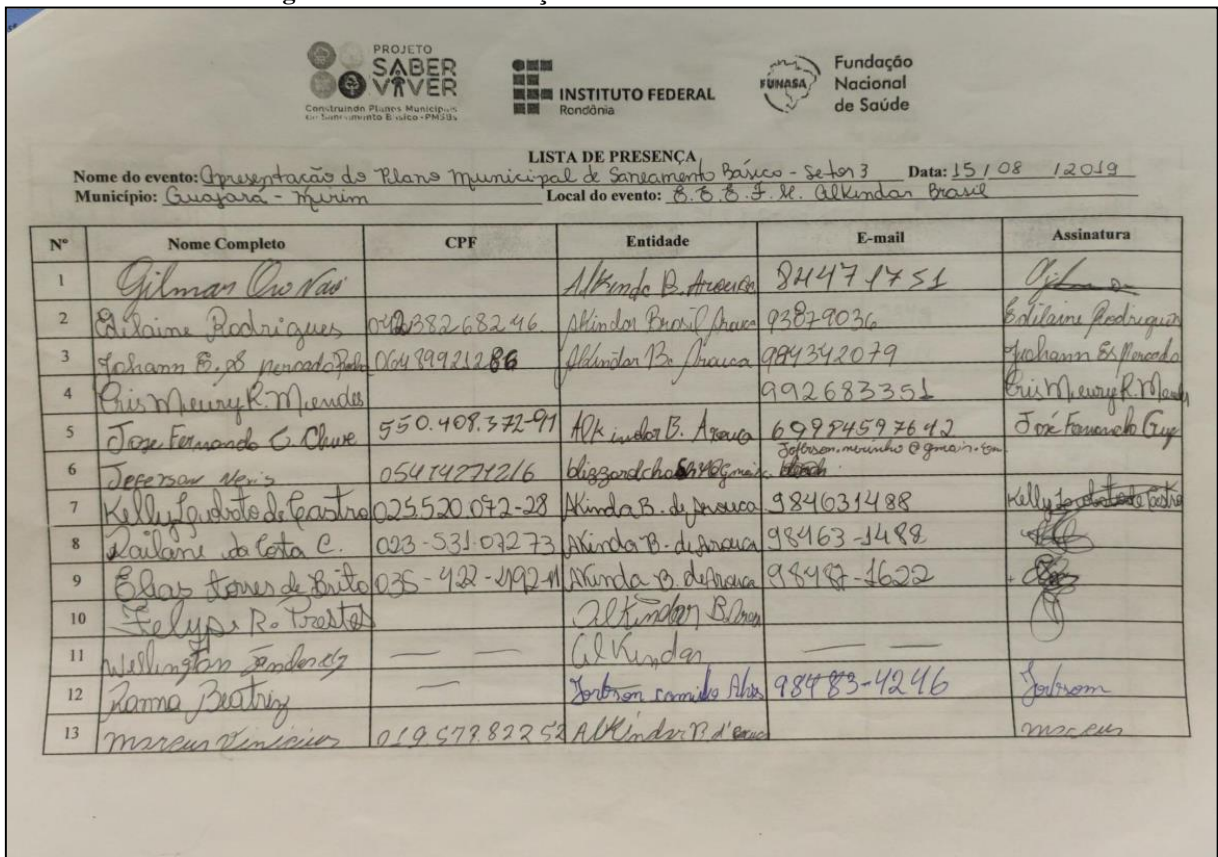 PROJETO
SABER
VIVER
Construindo Planos Municipais
de Saneamento Básico - PMSBs
INSTITUTO FEDERAL
Rondônia
FUNASA
Fundação
Nacional
de Saúde
LISTA DE PRESENÇA
Nome do evento: Apresentação do Plano Municipal de Saneamento Básico - Setor 3 Data: 15 / 08 / 2019
Município: Guajará - Mirim Local do evento: E. E. E. F. M. Alkindar Brasil
Nº Nome Completo CPF Entidade E-mail Assinatura
1 Gilmar Oro Nao Alkinda B. Arouca 84471751
2 Edilaine Rodrigues 04238268246 Alkindar Brasil Arouca 93879036 Edilaine Rodrigues
3 Johann E. 06489921286 Alkindar B. Arouca 984342079 Johann
4 Cris Meury R. Mendes 992683351 Cris Meury R.
5 Jose Fernando C. 550.408.372-91 Alkindar B. Arouca 69984597642 José Fernando
6 Jeferson 05414271216
7 Kelly de Castro 025.520.072-28 Akinda B. de Arouca 984631488 Kelly
8 Railane da Costa C. 023-531.07273 Akinda B. de Arouca 98463-1488
9 Elias torres de Brito Akinda B. de Arouca 98487-1622
10 Felype R. Prestes Alkindar B.
11 Wellington Alkindar
12 Ranna Beatriz 98483-4246
13 Marcus Vinicius 019.579.82252 Marcus